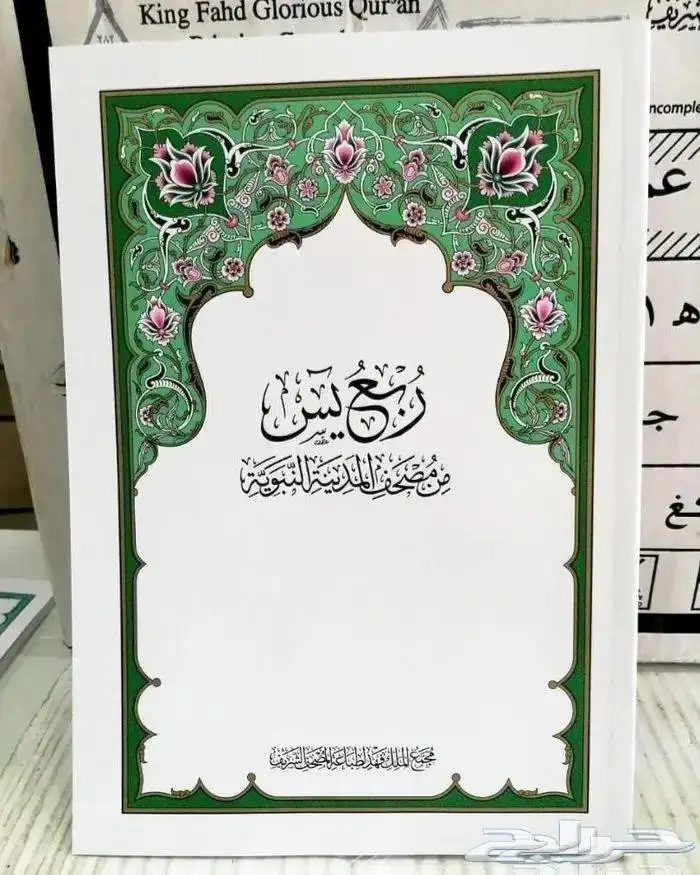 King Fahd Glorious Qur'an
٢٨٢
ncomple
رُبعُ يسٓ
مِن مُصْحَفِ المَدِينَةِ النَّبَوِيَّة
مجمع الملك فهد لطباعة المصحف الشريف
حراج